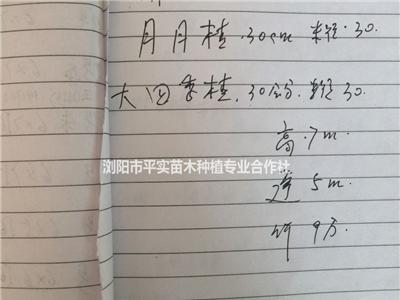 月月桂.30cm 米径.30.
大四季桂.30公分.米径30.
高.7m.
浏阳市平实苗木种植专业合作社
蓬5m.
9万.